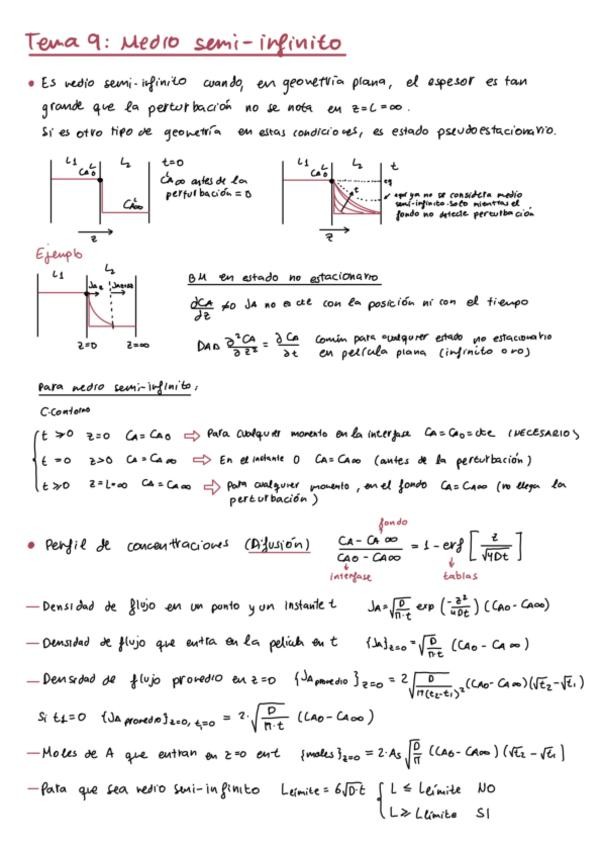 Tema 9: Medio semi-infinito
• Es medio semi-infinito cuando, en geometría plana, el espesor es tan
grande que la perturbación no se nota en z=L=∞.
Si es otro tipo de geometría en estas condiciones, es estado pseudoestacionario.
L1 L2 t=0
CA0 CA∞ antes de la
perturbación = 0
CA∞
z
L1 L2 t
CA0 eq
t aquí ya no se considera medio
semi-infinito. Solo mientras el
fondo no detecte perturbación
z
Ejemplo
L1 L2
JA z JA z+Δz
z=0 z=∞
BM en estado no estacionario
dCA/dz ≠0 JA no es cte con la posición ni con el tiempo
DAB ∂²CA/∂z² = ∂CA/∂t Común para cualquier estado no estacionario
en película plana (infinito o no)
Para medio semi-infinito:
C.Contorno
t ≥0 z=0 CA=CA0 ⇒ Para cualquier momento en la interfase CA=CA0=cte (NECESARIO)
t =0 z>0 CA=CA∞ ⇒ En el instante 0 CA=CA∞ (antes de la perturbación)
t≥0 z=L=∞ CA=CA∞ ⇒ Para cualquier momento, en el fondo CA=CA∞ (no llega la
perturbación)
fondo
• Perfil de concentraciones (Difusión) (CA-CA∞)/(CA0-CA∞) = 1-erf [z/√4Dt]
interfase tablas
— Densidad de flujo en un punto y un instante t JA=√(D/π·t) exp (-z²/4Dt) (CA0-CA∞)
— Densidad de flujo que entra en la película en t {JA}z=0 =√(D/π·t) (CA0-CA∞)
— Densidad de flujo promedio en z=0 {JA promedio}z=0 = 2√(D/π(t2-t1)²) (CA0-CA∞)(√t2-√t1)
Si t1=0 {JA promedio}z=0, t1=0 = 2·√(D/π·t) (CA0-CA∞)
— Moles de A que entran en z=0 en t {moles}z=0 = 2·As √(D/π) (CA0-CA∞)(√t2-√t1)
— Para que sea medio semi-infinito Lelímite = 6√D·t { L ≤ Lelímite NO
L≥ Llímite SI